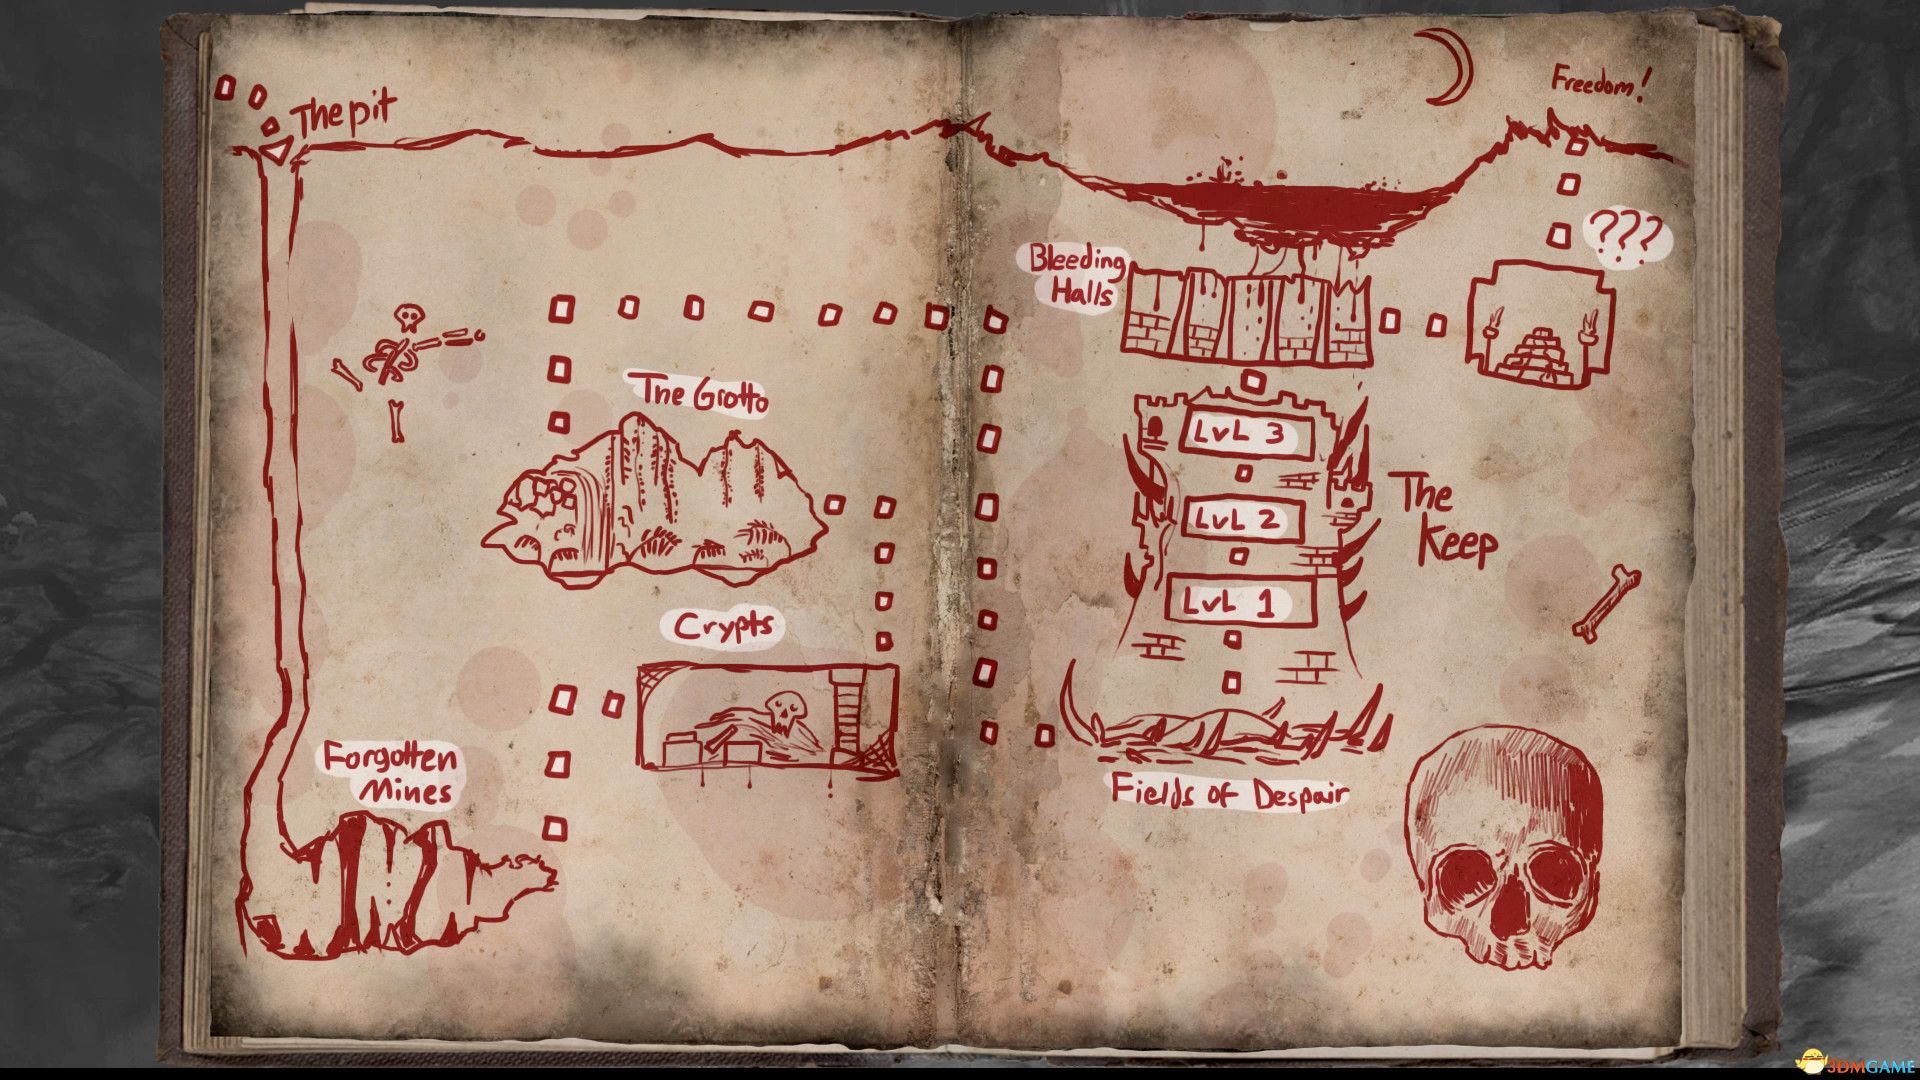 The pit
Freedom!
???
Bleeding
Halls
The Grotto
LvL 3
LvL 2
LvL 1
The
Keep
Crypts
Forgotten
Mines
Fields of Despair
3DMGAME